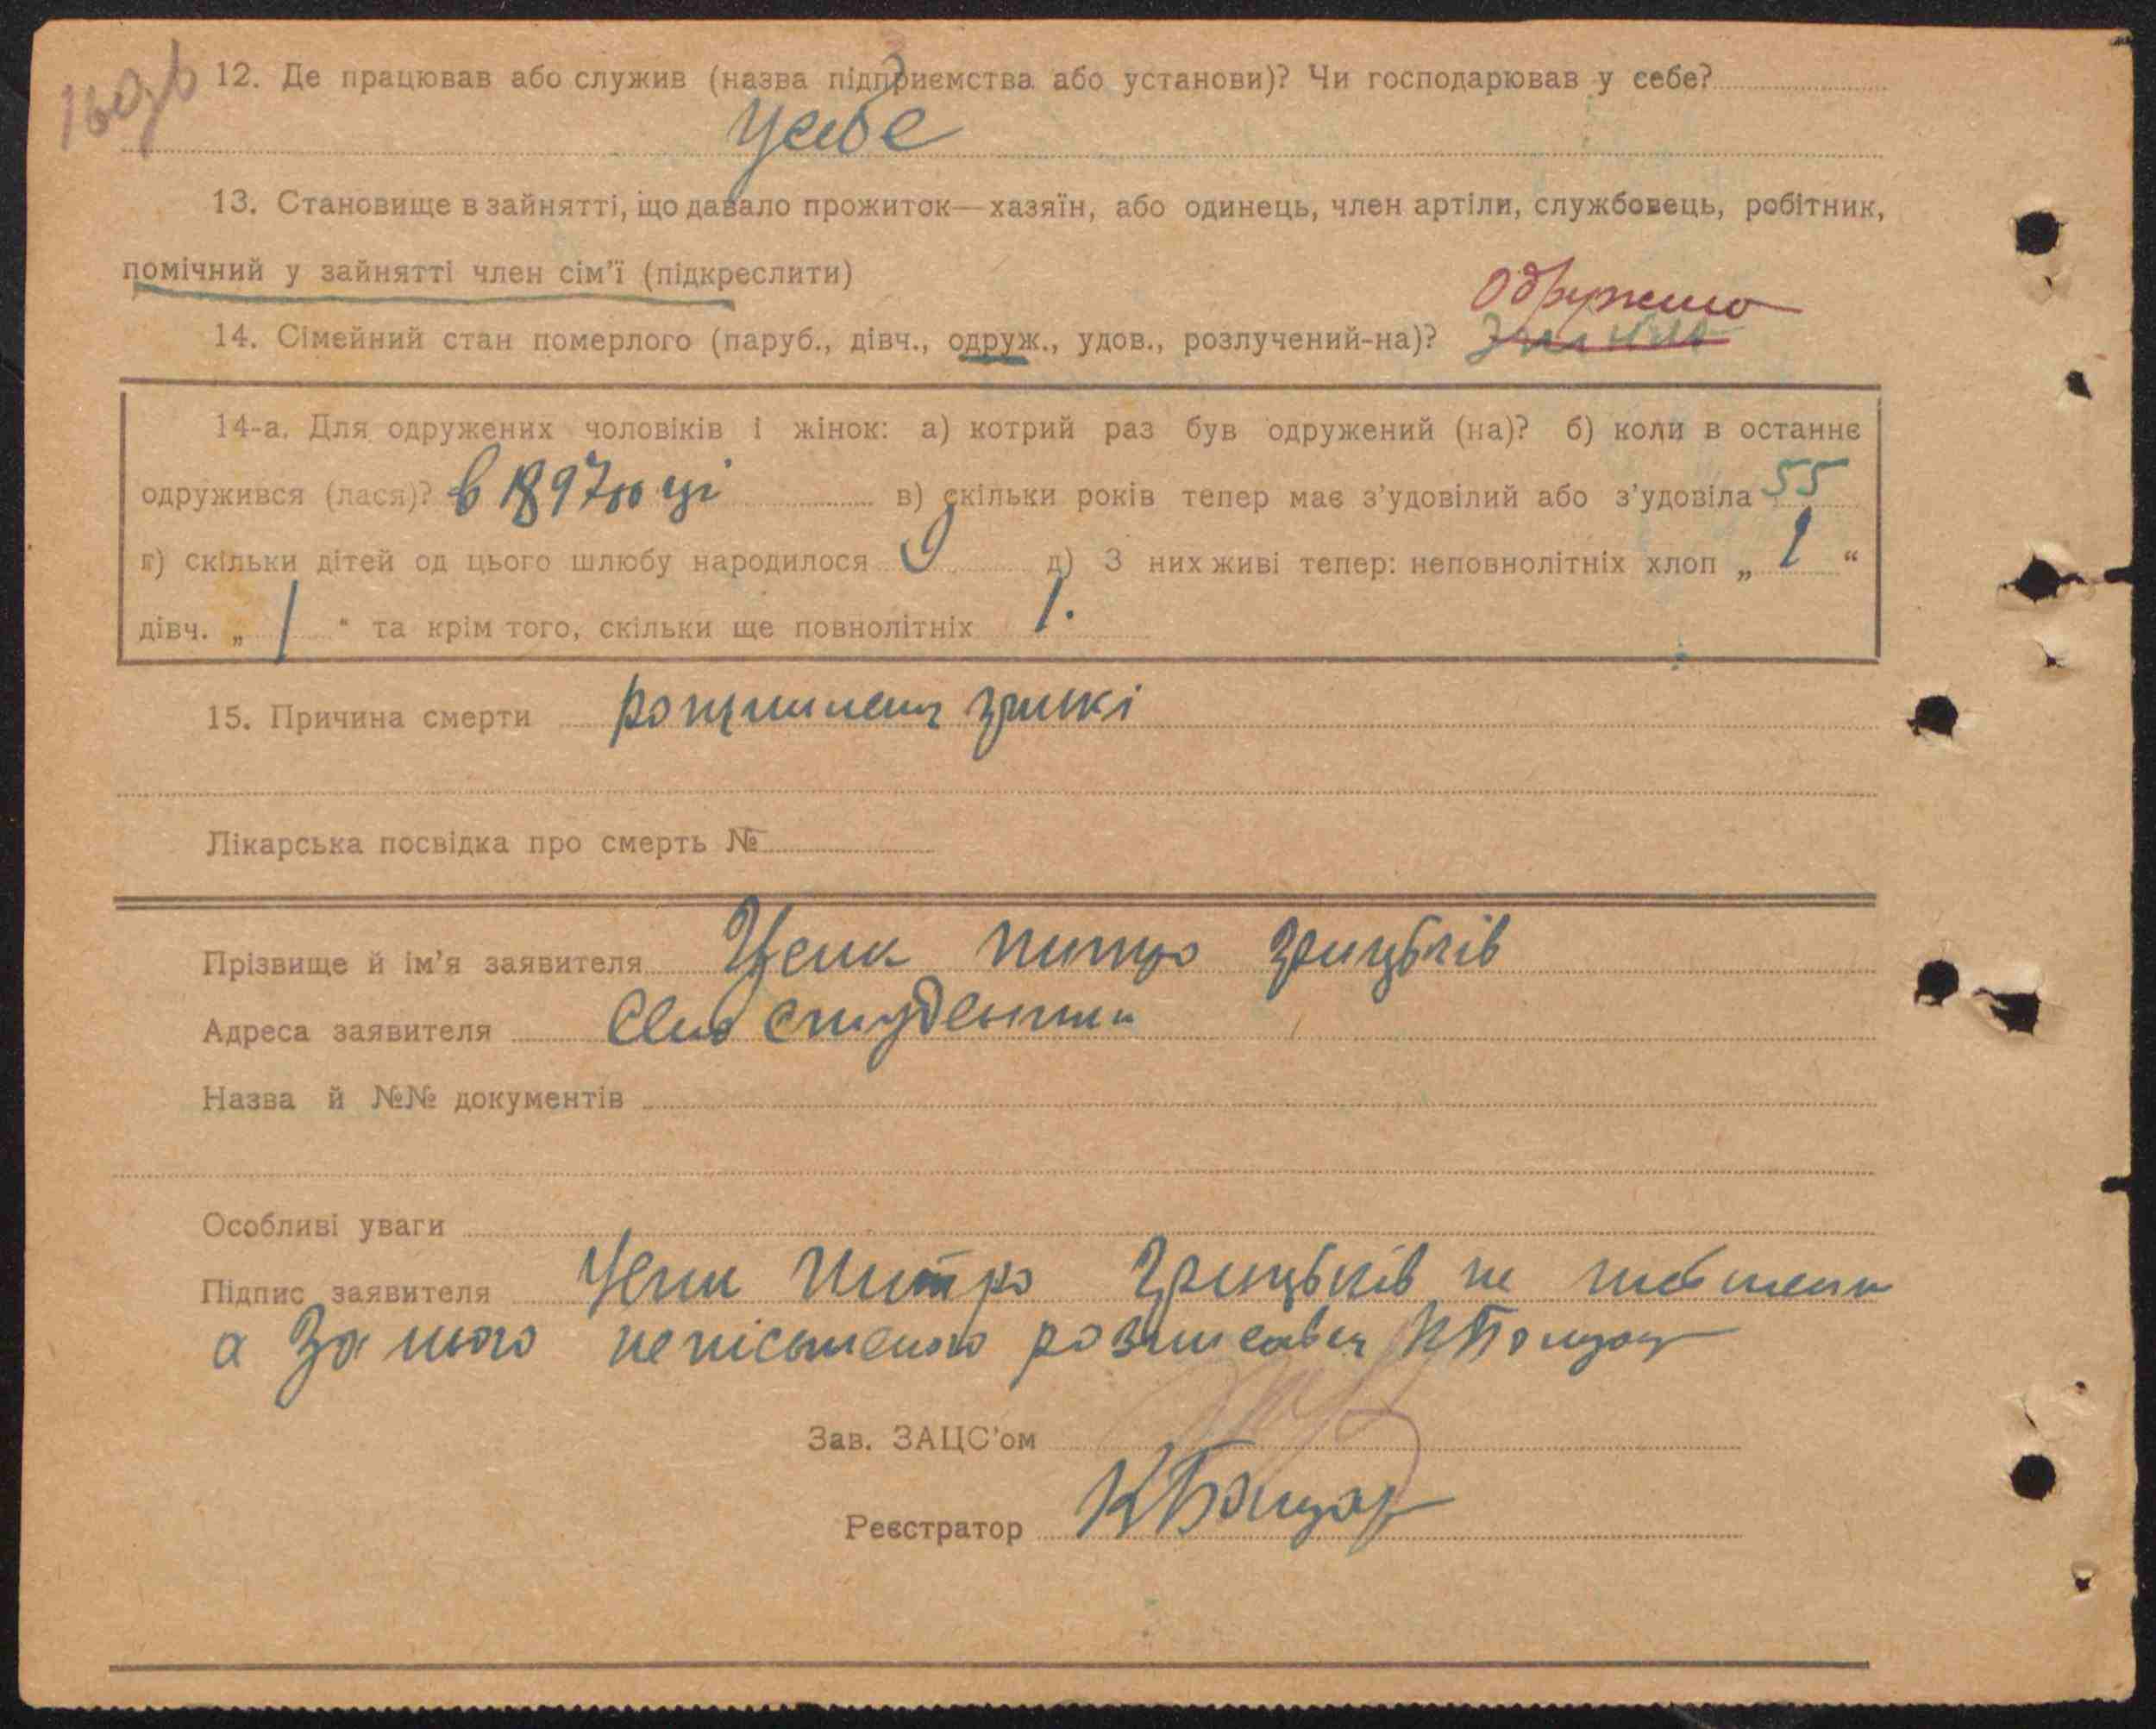 160зв
12. Де працював або служив (назва підприємства або установи)? Чи господарював у себе?
У себе
13. Становище в зайнятті, що давало прожиток—хазяїн, або одинець, член артіли, службовець, робітник,
помічний у зайнятті член сім'ї (підкреслити)
Одружино
14. Сімейний стан померлого (паруб., дівч., одруж., удов., розлучений-на)?
14-а. Для одружених чоловіків і жінок: а) котрий раз був одружений (на)? б) коли в останнє
одружився (лася)? в 1897 році в) скільки років тепер має з'удовілий або з'удовіла 55
г) скільки дітей од цього шлюбу народилося 9 д) З них живі тепер: неповнолітніх хлоп „ 1 “
дівч. „ 1 “ та крім того, скільки ще повнолітніх 1.
15. Причина смерти
Лікарська посвідка про смерть №
Прізвище й ім'я заявителя Грицьків
Адреса заявителя Село
Назва й №№ документів
Особливі уваги
Підпис заявителя Грицьків не
а За нього неписьменого розписався
Зав. ЗАЦС'ом
Реєстратор